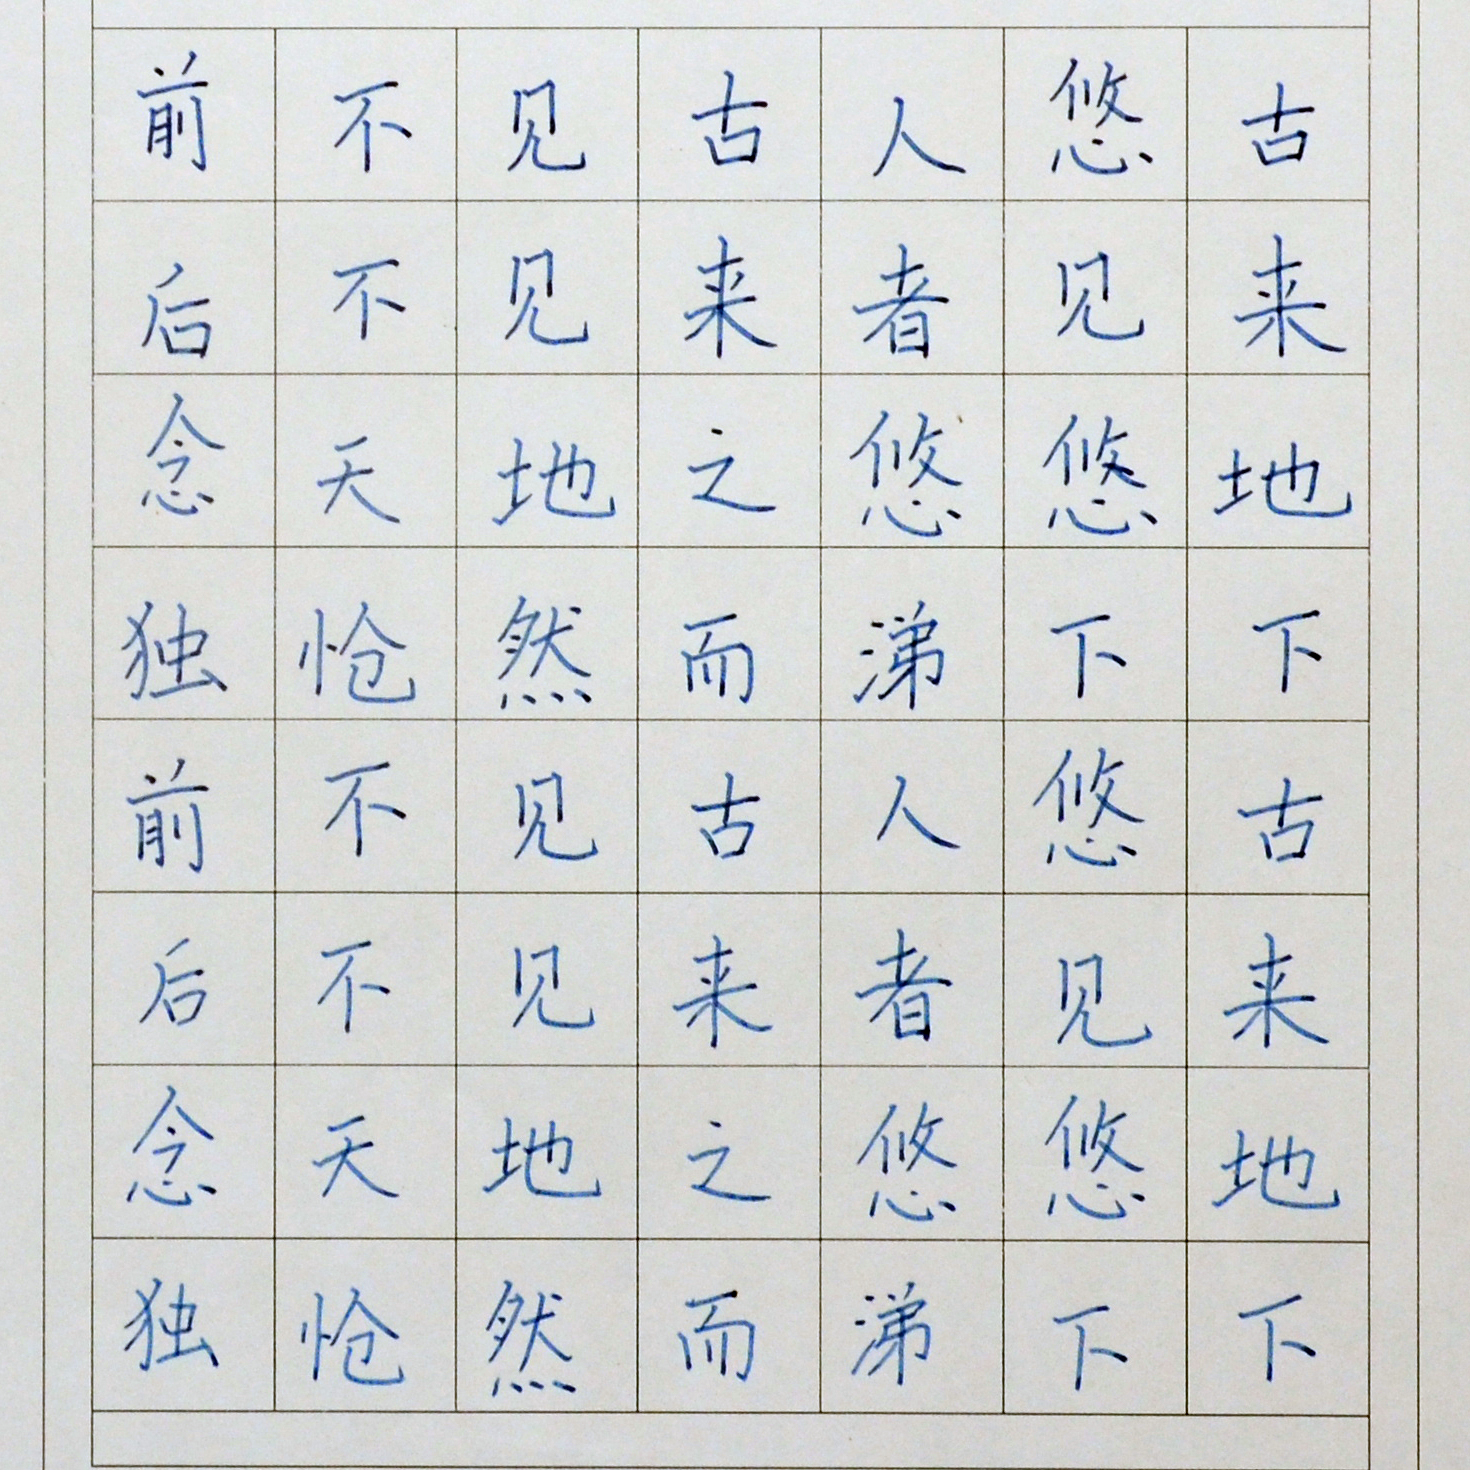 前不见古人悠古
后不见来者见来
念天地之悠悠地
独怆然而涕下下
前不见古人悠古
后不见来者见来
念天地之悠悠地
独怆然而涕下下